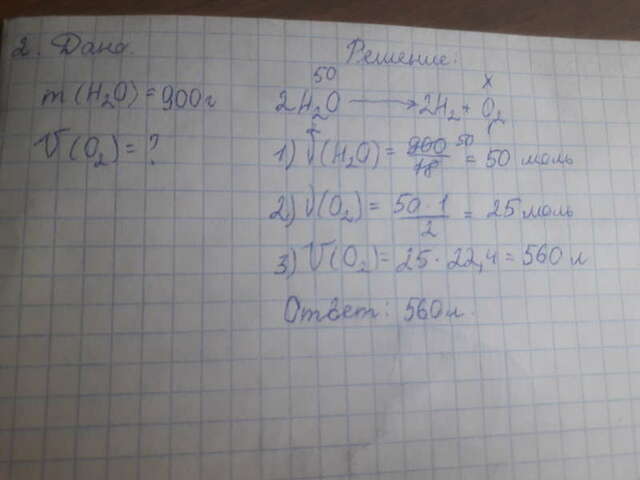 2. Дано.
m(H₂O) = 900 г
V(O₂) = ?
Решение:
50 x
2H₂O ⟶ 2H₂ + O₂
2 1
1) ν(H₂O) = 900/18 50 = 50 моль
2) ν(O₂) = 50 · 1/2 = 25 моль
3) V(O₂) = 25 · 22,4 = 560 л
Ответ: 560 л.